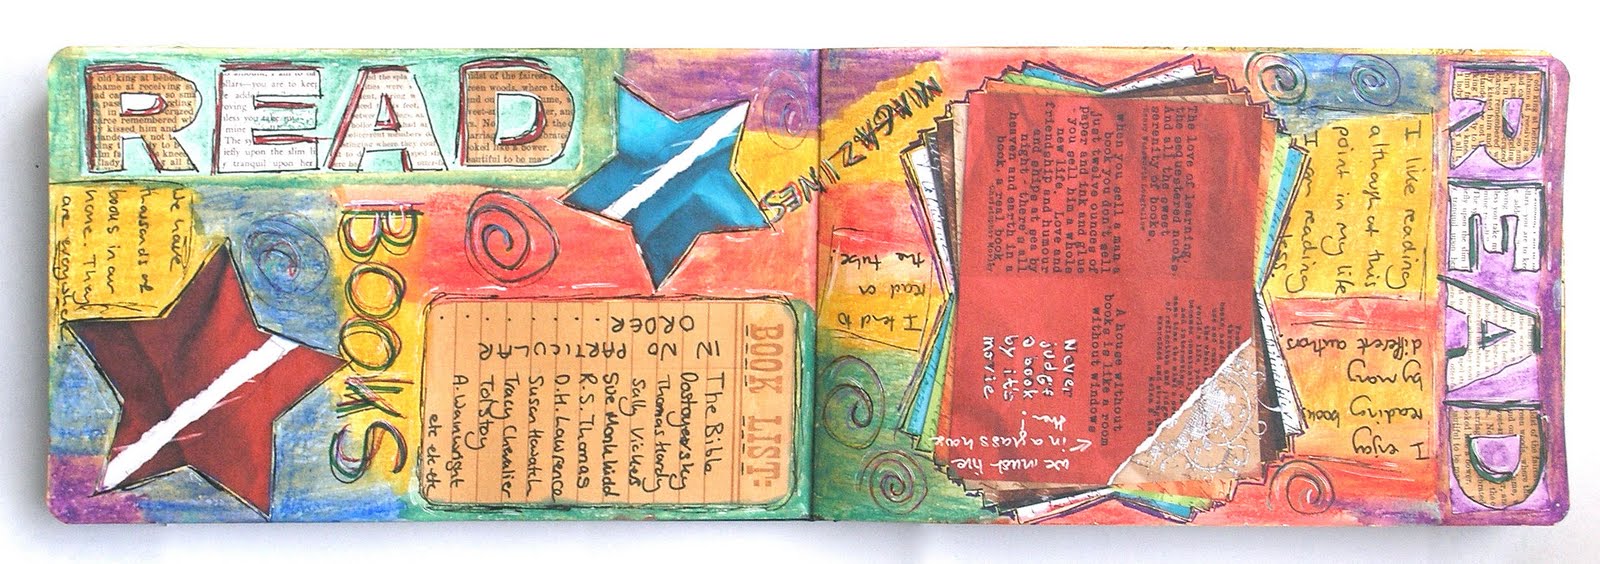 READ
We have
thousands of
books in our
home. They
are everywhere.
BOOKS
MAGAZINES
BOOK LIST:
IN NO
PARTICULAR
ORDER
The Bible
Dostoyevsky
Thomas Hardy
Sally Vickers
Sue Monk Kidd
R.S. Thomas
D.H. Lawrence
Susan Howatch
Tracy Chevalier
Tolstoy
A. Wainwright
etc etc etc
I tend to
read on
the tube!
The love of learning,
the sequestered nooks,
And all the sweet
serenity of books.
Henry Wadsworth Longfellow
When you sell a man a
book you don't sell
just twelve ounces of
paper and ink and glue
you sell him a whole
new life. Love and
friendship and humour
and ships at sea by
night - there's all
heaven and earth in a
book, a real book.
Christopher Morley
A house without
books is like a room
without windows
Never
judge
a book
by its
movie
we must live
in a glass house
I like reading
although at this
point in my life
I am reading
less
I enjoy
reading books
by many
different authors
READ